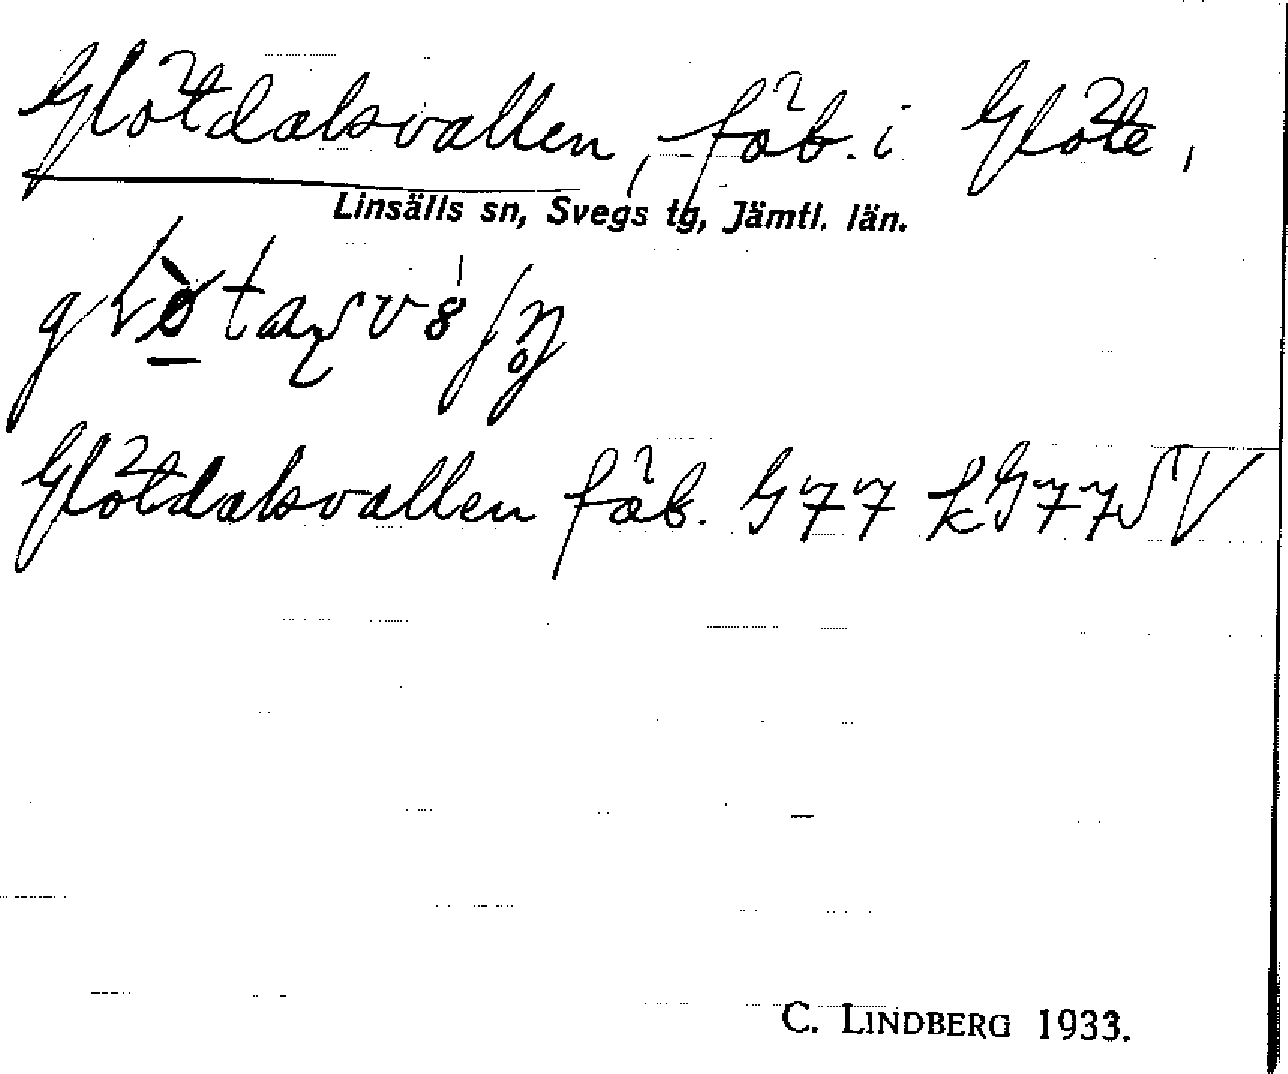 Glötdalsvallen, fäb. i Glöte,
Linsälls sn, Svegs tg, Jämtl. län.
Glötdalsvallen fäb. G77 kG77SV
C. LINDBERG 1933.